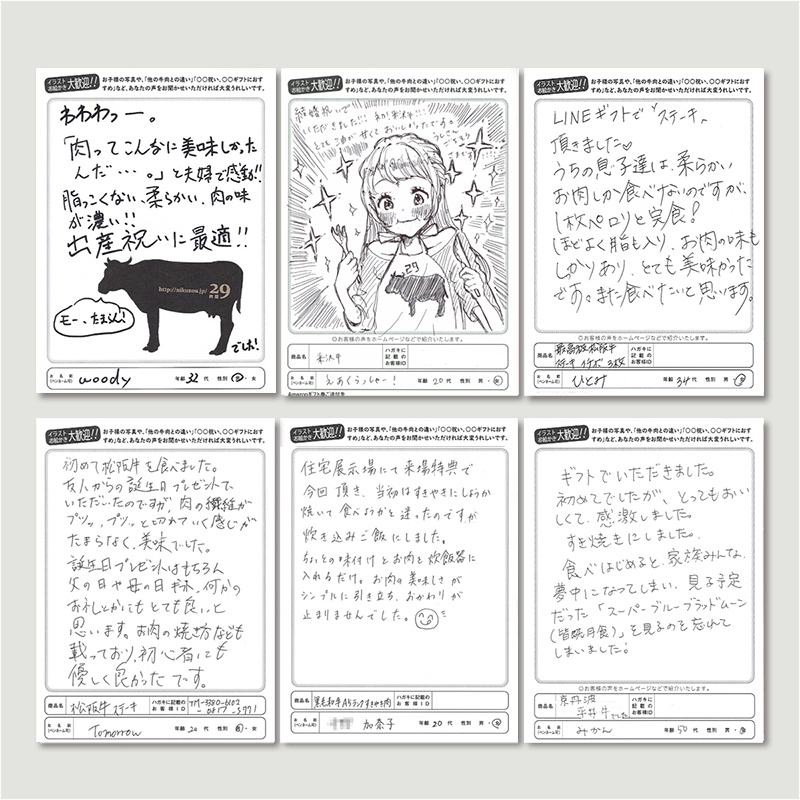 イラスト
お絵かき 大歓迎!!
お子様の写真や、「他の牛肉との違い」「〇〇祝い、〇〇ギフトにおす
すめ」など、あなたの声をお聞かせいただければ大変うれしいです。
わわわっー。
「肉ってこんなに美味しかった
んだ…。」と夫婦で感動!!
脂っこくない、柔らかい、肉の味
が濃い!!
出産祝いに最適!!
http://nikuzou.jp/ 29
モー、たまらん!
でしょ!
お名前
(ペンネーム可)
woody
年齢 32 代 性別 男・女
イラスト
お絵かき 大歓迎!!
お子様の写真や、「他の牛肉との違い」「〇〇祝い、〇〇ギフトにおす
すめ」など、あなたの声をお聞かせいただければ大変うれしいです。
結婚祝いで
いただきました!!
とても油が甘くておいしかったです。
29
◎お客様の声をホームページなどで紹介いたします。
商品名 米沢牛
ハガキに
記載の
お客様ID
お名前
(ペンネーム可)
年齢 20 代 性別 男・女
Amazonギフト券ご送付先
イラスト
お絵かき 大歓迎!!
お子様の写真や、「他の牛肉との違い」「〇〇祝い、〇〇ギフトにおす
すめ」など、あなたの声をお聞かせいただければ大変うれしいです。
LINEギフトで、ステーキ、
頂きました♡
うちの息子達は、柔らかい
お肉しか食べないのですが、
1枚ペロリと完食!
ほどよく脂も入り、お肉の味も
しっかりあり、とても美味かった
です。また食べたいと思います。
◎お客様の声をホームページなどで紹介いたします。
商品名 最高級松阪牛
ステーキ イチボ 3枚
ハガキに
記載の
お客様ID
お名前
(ペンネーム可)
ひとみ
年齢 34 代 性別 男・女
イラスト
お絵かき 大歓迎!!
お子様の写真や、「他の牛肉との違い」「〇〇祝い、〇〇ギフトにおす
すめ」など、あなたの声をお聞かせいただければ大変うれしいです。
初めて松阪牛を食べました。
友人からの誕生日プレゼントで
いただいたのですが、肉の繊維が
プツッ、プツッと切れていく感じが
たまらなく、美味でした。
誕生日プレゼントはもちろん
父の日や母の日ギフト、何かの
お礼しとかにもとても良いと
思います。お肉の焼き方なども
載っており、初心者にも
優しく良かったです。
商品名 松阪牛ステーキ
ハガキに記載の
お客様ID
お名前
(ペンネーム可)
Tomorrow
年齢 20 代 性別 男・女
イラスト
お絵かき 大歓迎!!
お子様の写真や、「他の牛肉との違い」「〇〇祝い、〇〇ギフトにおす
すめ」など、あなたの声をお聞かせいただければ大変うれしいです。
住宅展示場にて来場特典で
今回頂き、当初はすきやきにしようか
焼いて食べようかと迷ったのですが
炊き込みご飯にしました。
ちょっとの味付けとお肉を炊飯器に
入れるだけ。お肉の美味しさが
シンプルに引き立ち、おかわりが
止まりませんでした。
商品名 黒毛和牛A5ランクすきやき肉
ハガキに記載の
お客様ID
お名前
(ペンネーム可)
加奈子
年齢 20 代 性別 男・女
イラスト
お絵かき 大歓迎!!
お子様の写真や、「他の牛肉との違い」「〇〇祝い、〇〇ギフトにおす
すめ」など、あなたの声をお聞かせいただければ大変うれしいです。
ギフトでいただきました。
初めてでしたが、とってもおい
しくて、感激しました。
すき焼きにしました。
食べはじめると、家族みんな、
夢中になってしまい、見る予定
だった「スーパーブルーブラッドムーン
(皆既月食)」を見るのを忘れて
しまいました!
◎お客様の声をホームページなどで紹介いたします。
商品名 京丹波
平井牛でした
ハガキに
記載の
お客様ID
お名前
(ペンネーム可)
みかん
年齢 50 代 性別 男・女